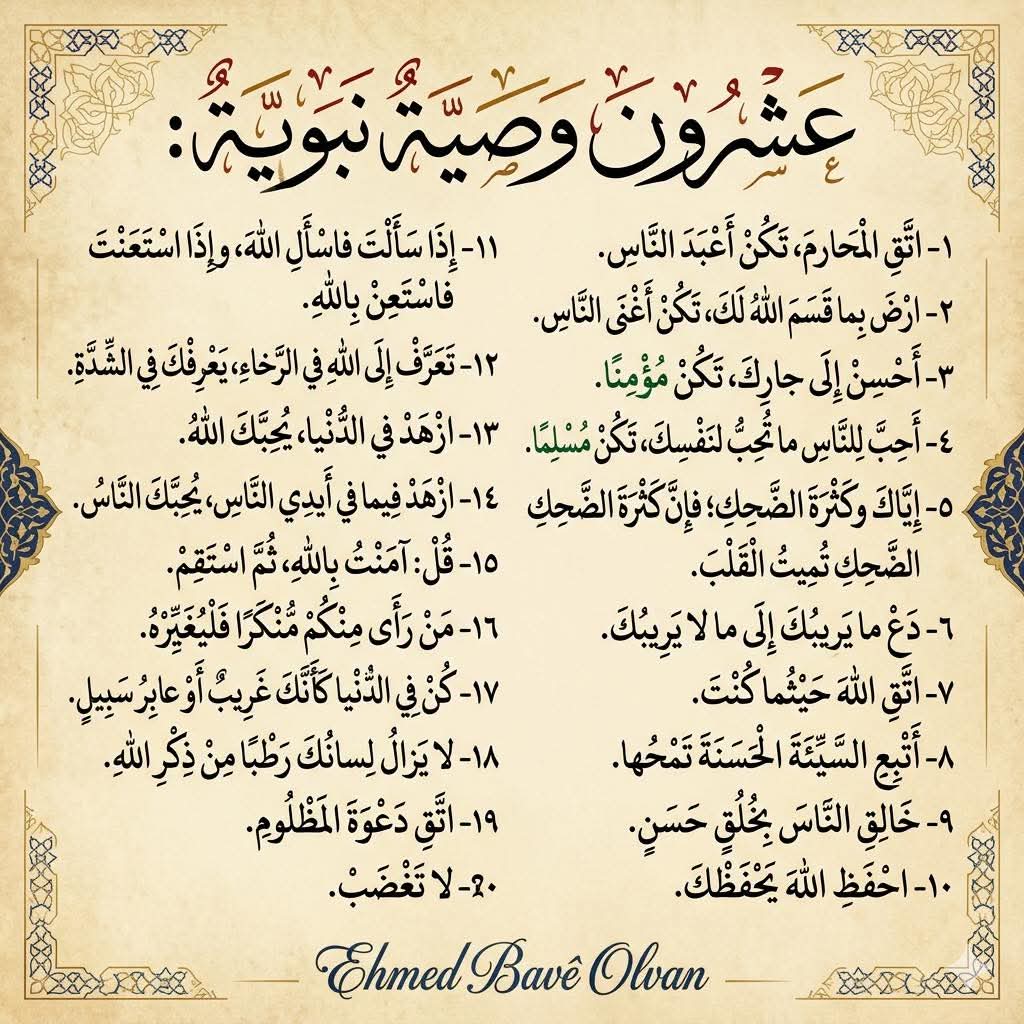 عَشْرُونَ وَصِيَّةٌ نَبَوِيَّةٌ:
١- اتَّقِ الْمَحارِمَ، تَكُنْ أَعْبَدَ النَّاسِ.
٢- ارْضَ بِما قَسَمَ اللهُ لَكَ، تَكُنْ أَغْنَى النَّاسِ.
٣- أَحْسِنْ إِلَى جارِكَ، تَكُنْ مُؤْمِنًا.
٤- أَحِبَّ لِلنَّاسِ ما تُحِبُّ لنَفْسِكَ، تَكُنْ مُسْلِمًا.
٥- إِيَّاكَ وكَثْرَةَ الضَّحِكِ؛ فإِنَّ كَثْرَةَ الضَّحِكِ
الضَّحِكِ تُمِيتُ الْقَلْبَ.
٦- دَعْ ما يَريبُكَ إِلَى ما لا يَرِيبُكَ.
٧- اتَّقِ اللهَ حَيْثُما كُنْتَ.
٨- أَتْبِعِ السَّيِّئَةَ الْحَسَنَةَ تَمْحُها.
٩- خَالِقِ النَّاسَ بِخُلُقٍ حَسَنٍ.
١٠- احْفَظِ اللهَ يَحْفَظْكَ.
١١- إِذَا سَأَلْتَ فاسْأَلِ اللهَ، وإِذَا اسْتَعَنْتَ
فاسْتَعِنْ بِاللهِ.
١٢- تَعَرَّفْ إِلَى اللهِ في الرَّخاءِ، يَعْرِفْكَ فِي الشِّدَّةِ.
١٣- ازْهَدْ في الدُّنْيا، يُحِبَّكَ اللهُ.
١٤- ازْهَدْ فِيما في أَيدِي النَّاسِ، يُحِبَّكَ النَّاسُ.
١٥- قُلْ: آمَنْتُ بِاللهِ، ثُمَّ اسْتَقِمْ.
١٦- مَنْ رَأَى مِنْكُمْ مُّنْكَرًا فَلْيُغَيِّرْهُ.
١٧- كُنْ فِي الدُّنْيا كَأَنَّكَ غَرِيبٌ أَوْ عابِرُ سَبِيلٍ.
١٨- لا يَزالُ لِسانُكَ رَطْبًا مِنْ ذِكْرِ اللهِ.
١٩- اتَّقِ دَعْوَةَ المَظْلُومِ.
٢٠- لا تَغْضَبْ.
Ehmed Bavê Olvan